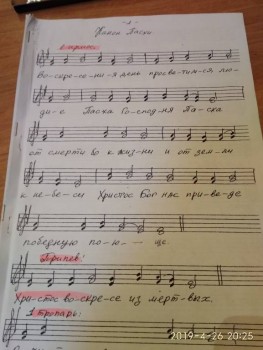 - 1 -
Канон Пасхи
1 ирмос:
Во-скре-се-ни-я день просве-тим-ся лю-
ди-е Пасха Го-спод-ня Па-сха
от смерти бо к жиз-ни и от зем-ли
к не-бе-си Христос Бог нас при-ве-де
победную по-ю- — ще.
Припев:
Хри-стос во-скре-се из мёрт-вых.
1 тропарь:
2019-4-26 20:25